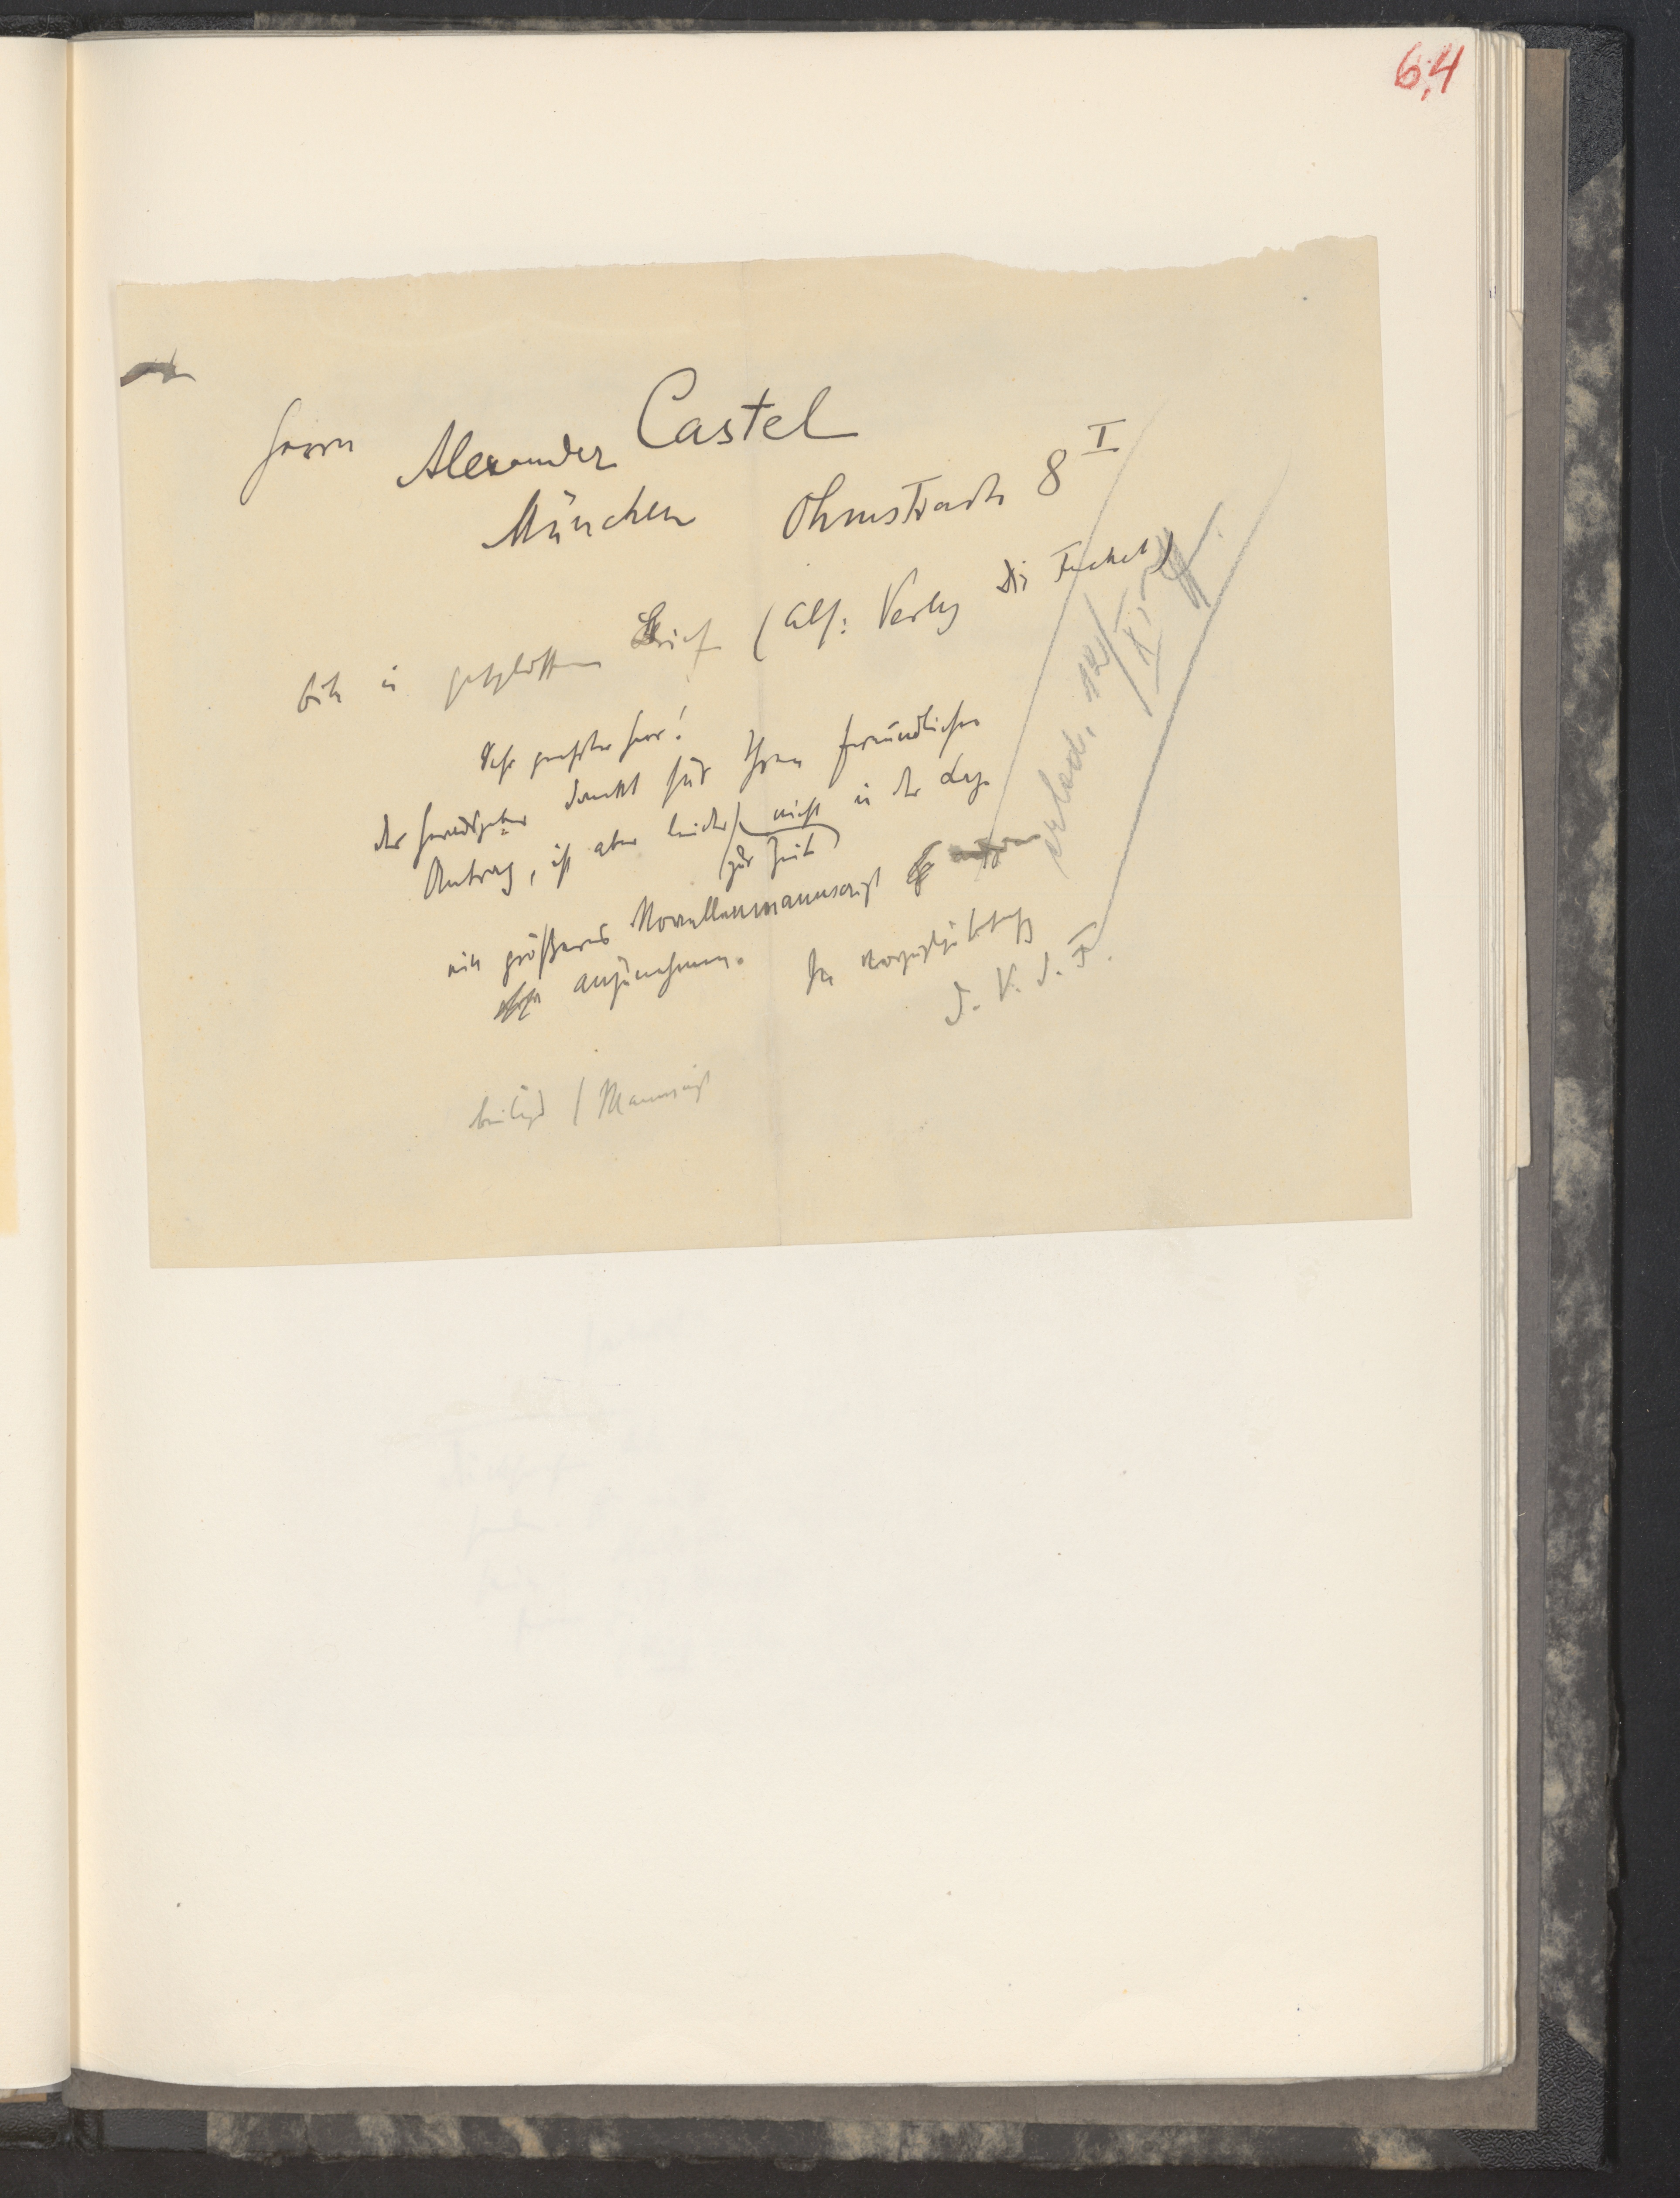 6,4
Herrn Alexander Castel
München Ohmstraße 8 I
bitte in geschlossenem Brief (Abs: Verlag Die Fackel)
Sehr geehrter Herr!
Der Herausgeber dankt für Ihren freundlichen
Antrag, ist aber leider nicht in der Lage
(zur Zeit)
ein größeres Novellenmanuscript
anzunehmen. In vorzüglicher
d. V. d. F.
erled. 12/XI
beiliegd / Manuscript